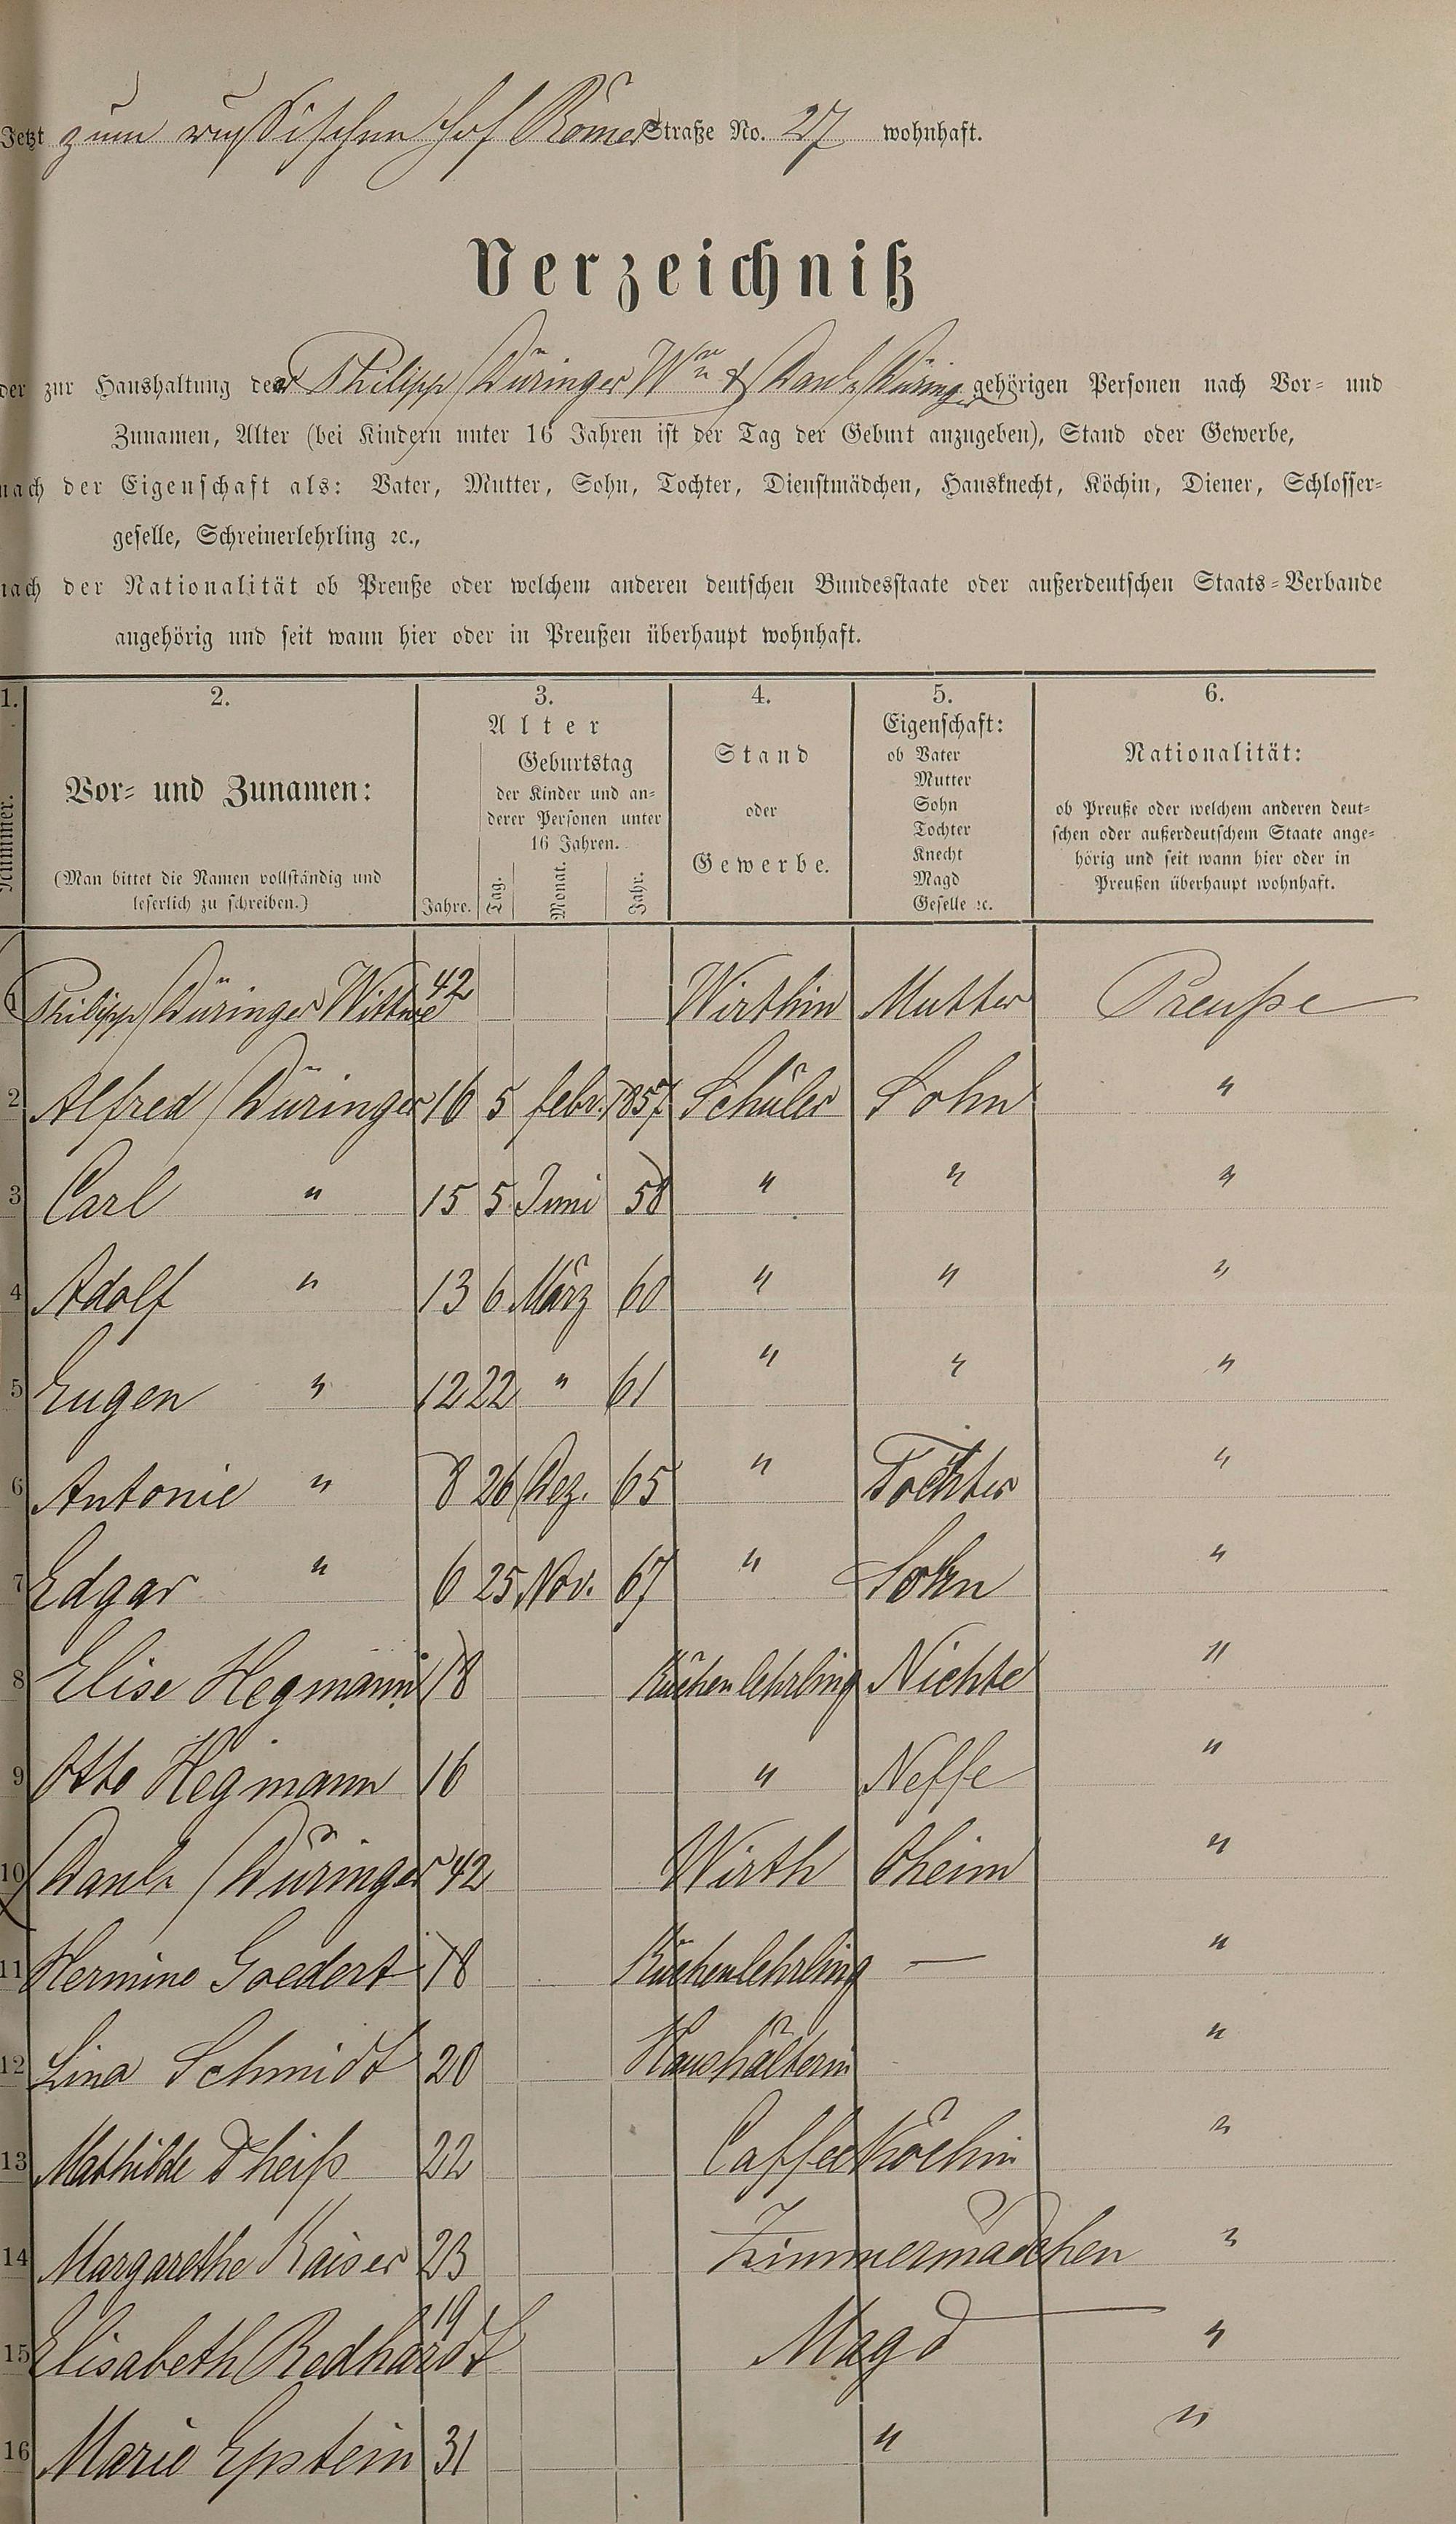 Jetzt zum russischen Hof Römer Straße No. 27 wohnhaft.
Verzeichniß
der zur Haushaltung der Philipp Düringer Wwe & Danl. Düringer gehörigen Personen nach Vor- und
Zunamen, Alter (bei Kindern unter 16 Jahren ist der Tag der Geburt anzugeben), Stand oder Gewerbe,
nach der Eigenschaft als: Vater, Mutter, Sohn, Tochter, Dienstmädchen, Hausknecht, Köchin, Diener, Schlosser-
geselle, Schreinerlehrling ꝛc.,
nach der Nationalität ob Preuße oder welchem anderen deutschen Bundesstaate oder außerdeutschen Staats-Verbande
angehörig und seit wann hier oder in Preußen überhaupt wohnhaft.
1. 2. 3. 4. 5. 6.
Nummer.
Vor- und Zunamen:
(Man bittet die Namen vollständig und
leserlich zu schreiben.)
Alter
Jahre.
Geburtstag
der Kinder und an-
derer Personen unter
16 Jahren.
Tag. Monat. Jahr.
Stand
oder
Gewerbe.
Eigenschaft:
ob Vater
Mutter
Sohn
Tochter
Knecht
Magd
Geselle ꝛc.
Nationalität:
ob Preuße oder welchem anderen deut-
schen oder außerdeutschem Staate ange-
hörig und seit wann hier oder in
Preußen überhaupt wohnhaft.
1 Philipp Düringer Wittwe 42 Wirthin Mutter Preuße
2 Alfred Düringer 16 5 febr. 1857 Schüler Sohn "
3 Carl " 15 5 Juni 58 " " "
4 Adolf " 13 6 März 60 " " "
5 Eugen " 12 22 " 61 " " "
6 Antonie " 8 26 Dez. 65 " Tochter "
7 Edgar " 6 25 Nov. 67 " Sohn "
8 Elise Hegmann 18 Küchenlehrling Nichte "
9 Otto Hegmann 16 " Neffe "
10 Danl. Düringer 42 Wirth Oheim "
11 Hermine Goedert 18 Küchenlehrling — "
12 Lina Schmidt 20 Haushälterin "
13 Mathilde Theiß 22 Caffeeköchin "
14 Margarethe Kaiser 23 Zimmermädchen "
15 Elisabeth Redhardt 19 Magd "
16 Marie Epstein 31 " "